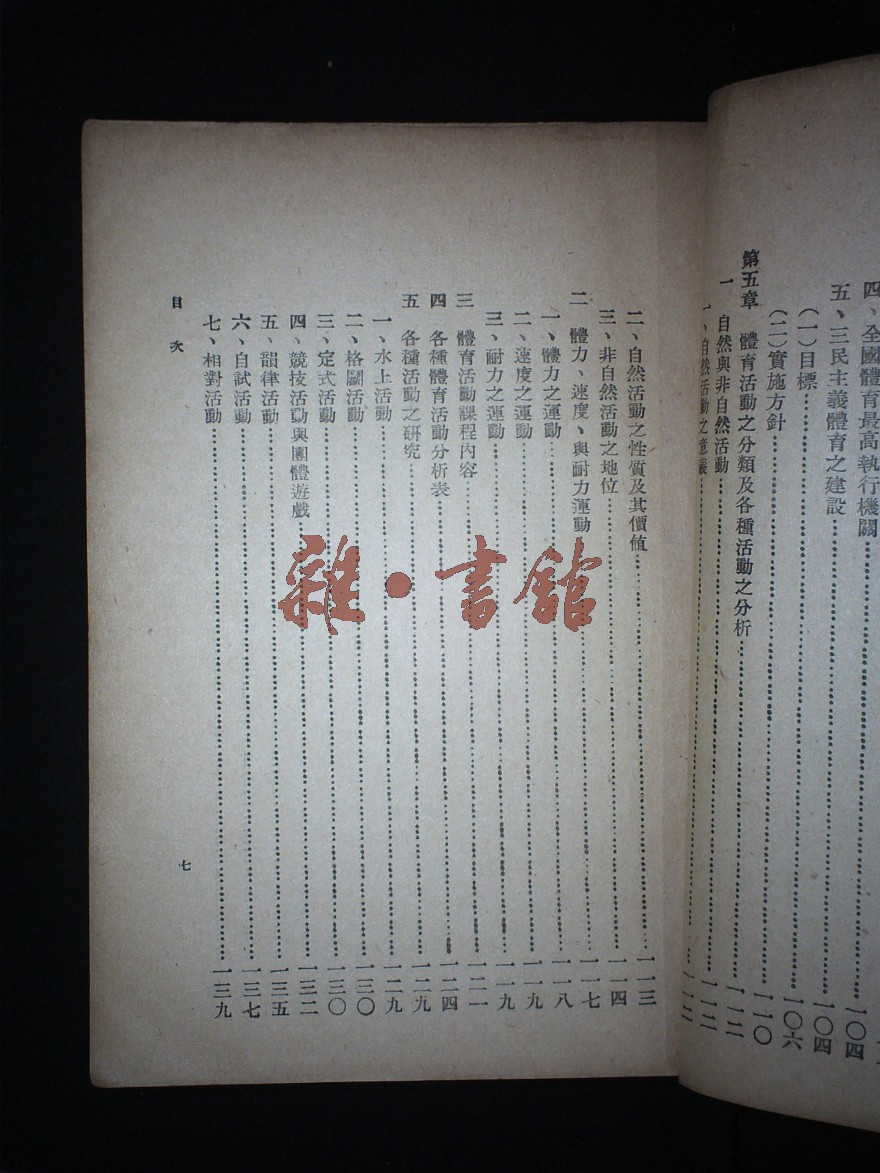 四、全國體育最高執行機關……一〇四
五、三民主義體育之建設……一〇四
(一)目標……一〇六
(二)實施方針……一一〇
第五章 體育活動之分類及各種活動之分析……一一二
一 自然與非自然活動……一一二
一、自然活動之意義……一一二
二、自然活動之性質及其價值……一一三
三、非自然活動之地位……一一四
二 體力、速度、與耐力運動……一一七
一、體力之運動……一一八
二、速度之運動……一一九
三、耐力之運動……一一九
三 體育活動課程內容……一二一
四 各種體育活動分析表……一二四
五 各種活動之研究……一二九
一、水上活動……一二九
二、格鬭活動……一三〇
三、定式活動……一三〇
四、競技活動與團體遊戲……一三二
五、韻律活動……一三五
六、自試活動……一三七
七、相對活動……一三九
目次
七
雜·書館